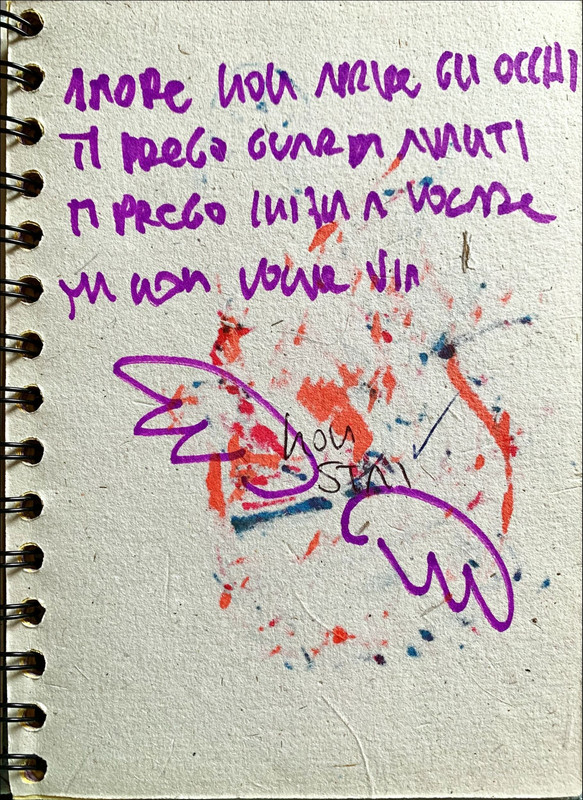 AMORE NON APRIRE GLI OCCHI
TI PREGO GUARDA AVANTI
TI PREGO INIZIA A VOLARE
MA NON VOLAR VIA
NON
STAI